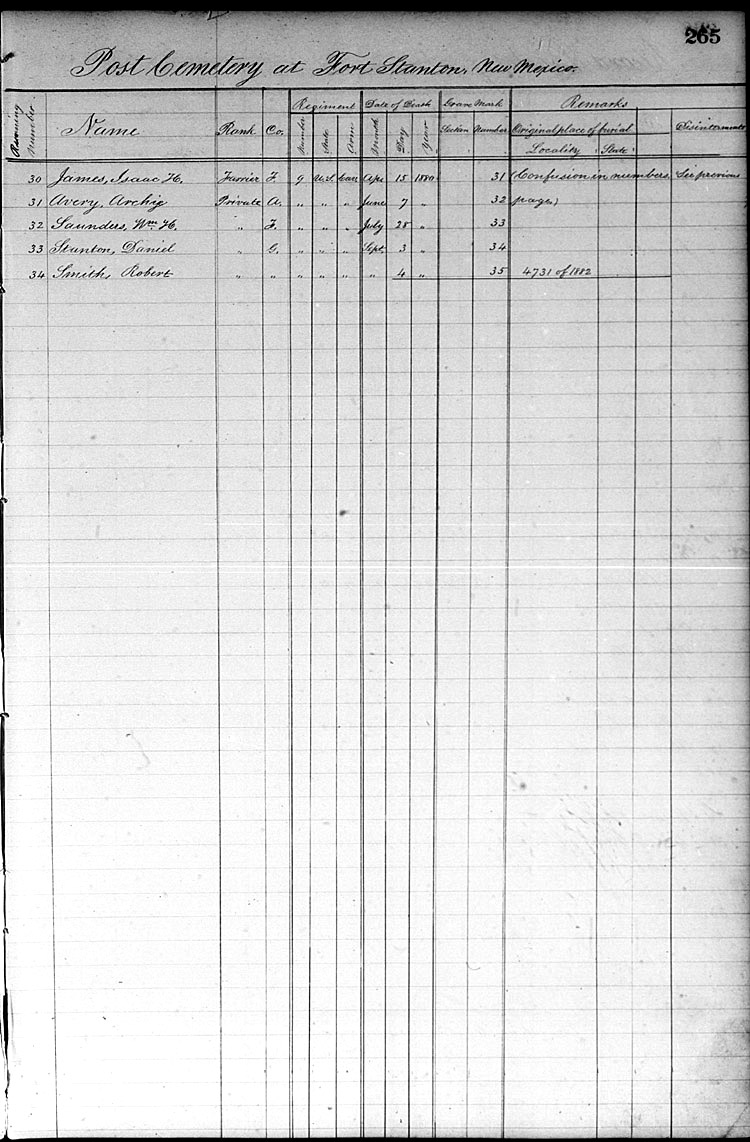 265
Post Cemetery at Fort Stanton, New Mexico.
Running Number. Name Rank Co. Regiment Number State Arm Date of Death Month Day Year Grave Mark Section Number Remarks Original place of burial Locality State Disinterments
30 James, Isaac H. Farrier F. 9 U.S. Cav. Apr 15 1880 31 (Confusion in numbers. See previous
31 Avery, Archie Private A. " " " June 7 " 32 page)
32 Saunders, Wm H. " F. " " " July 28 " 33
33 Stanton, Daniel " G. " " " Sept. 3 " 34
34 Smith, Robert " " " " " " 4 " 35 4731 of 1882